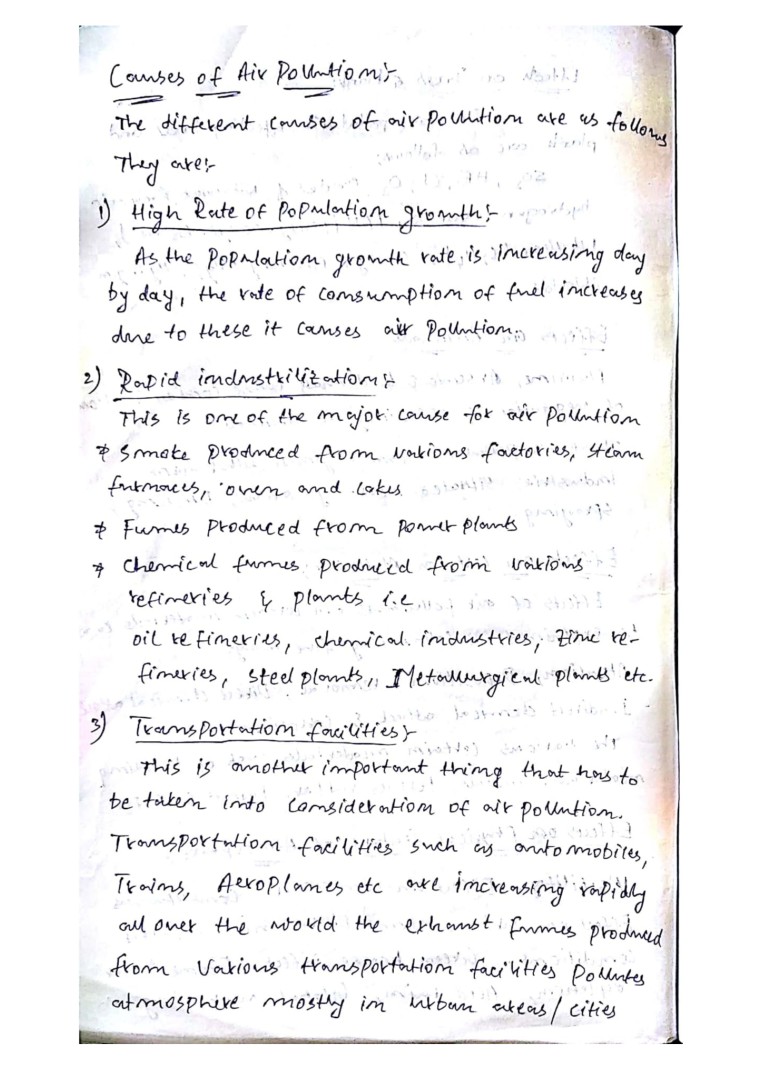 Causes of Air Pollution:-
The different causes of air pollution are as follows
They are:-
1) High Rate of Population growth:-
As the Population growth rate is increasing day
by day, the rate of consumption of fuel increases
due to these it causes air Pollution.
2) Rapid industrilization:-
This is one of the major cause for air pollution
* Smoke produced from various factories, steam
furnaces, oven and cokes
* Fumes produced from power plants
* Chemical fumes produced from various
refineries & plants i.e
oil refineries, chemical industries, Zinc re-
fineries, steel plants, Metallurgical plants etc.
3) Transportation facilities:-
This is another important thing that has to
be taken into consideration of air pollution.
Transportation facilities such as automobiles,
Trains, AeroPlanes etc are increasing rapidly
all over the world the exhaust fumes produced
from various transportation facilities Pollutes
atmosphere mostly in urban areas/cities